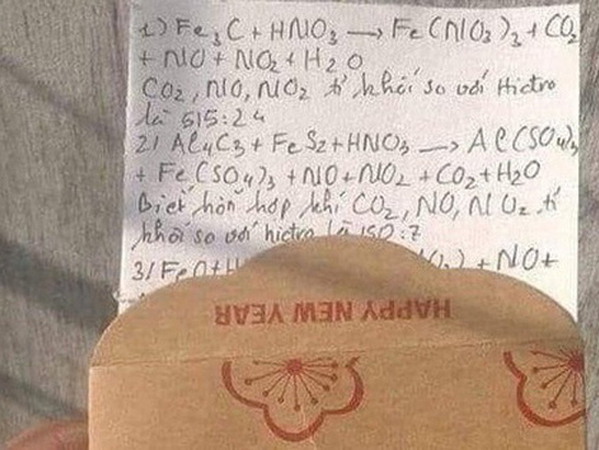 1) Fe3C + HNO3 → Fe(NO3)3 + CO2
+ NO + NO2 + H2O
CO2, NO, NO2 tỉ khối so với Hictro
là 515:24
2) Al4C3 + FeS2 + HNO3 → Al(SO4)3
+ Fe(SO4)3 + NO + NO2 + CO2 + H2O
Biết hỗn hợp khí CO2, NO, NO2 tỉ
khối so với hictro là 150:7
3) FeO + H
) + NO +
HAPPY NEW YEAR